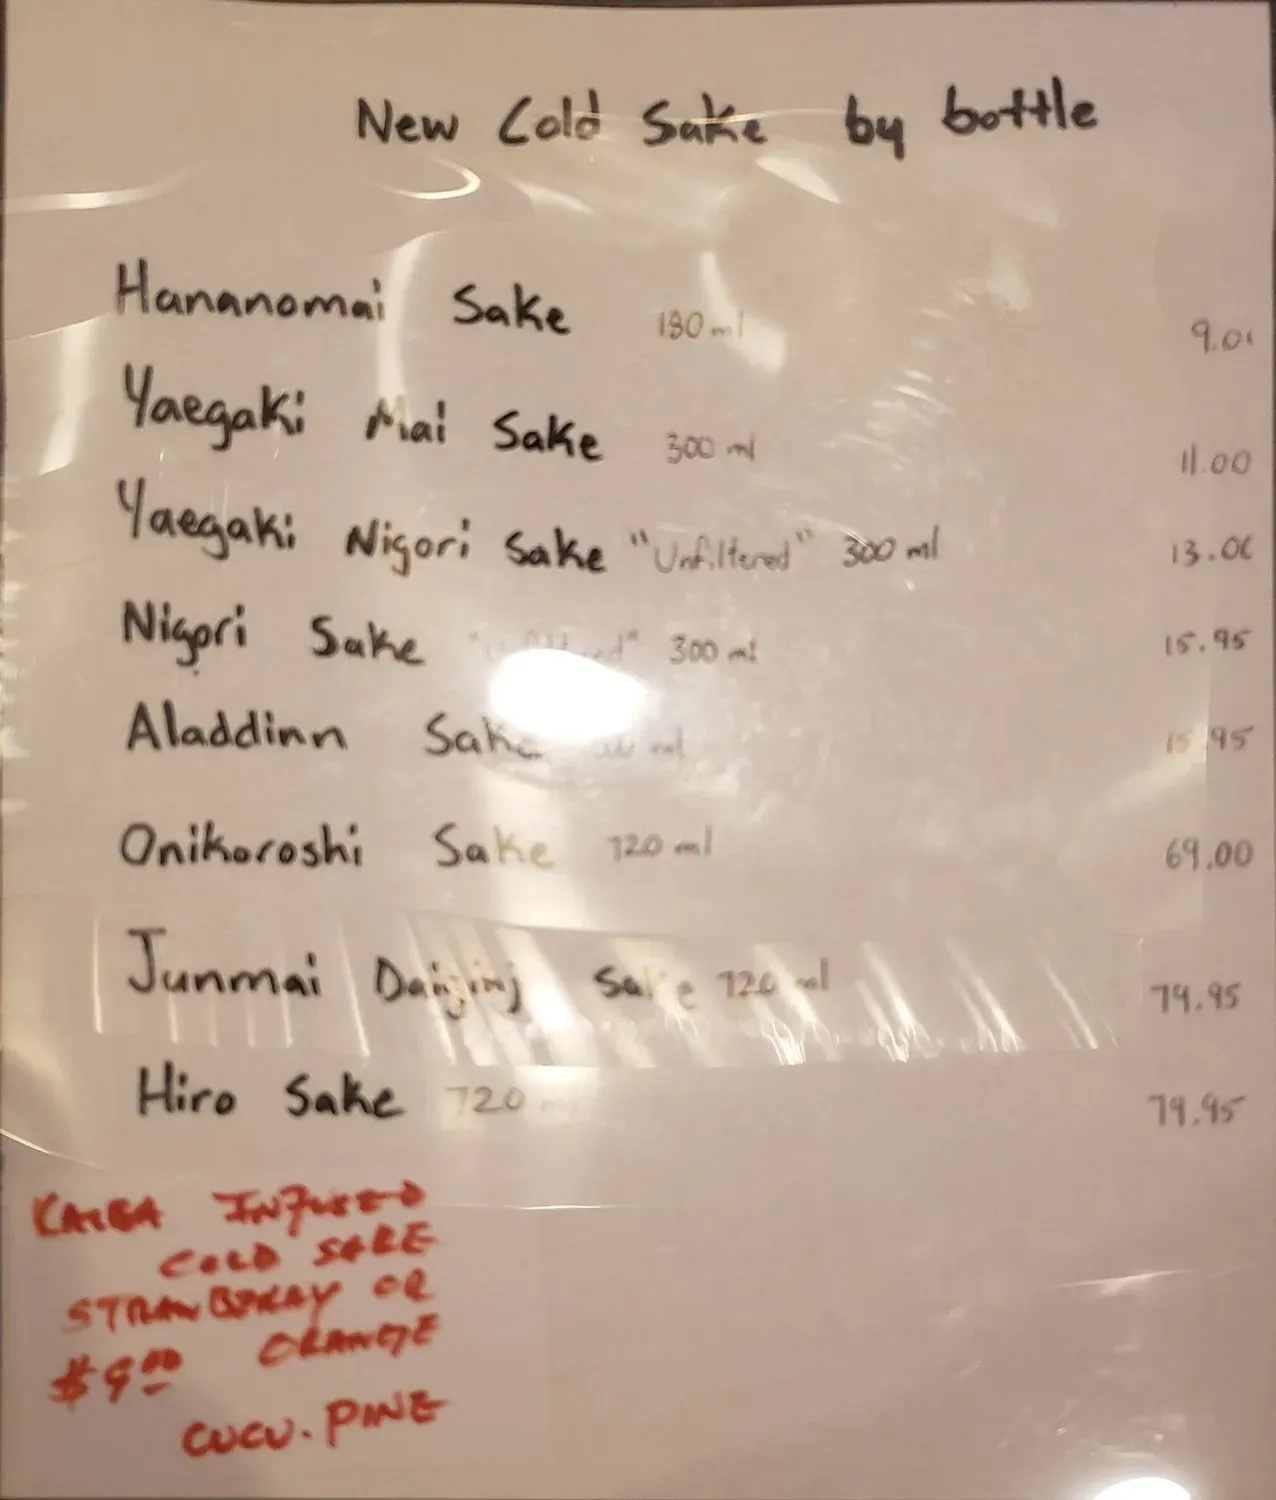 New Cold Sake by bottle
Hananomai Sake 180 ml 9.0
Yaegaki Mai Sake 300 ml 11.00
Yaegaki Nigori Sake "Unfiltered" 300 ml 13.00
Nigori Sake 300 ml 15.95
Aladdinn Sake ml 15.95
Onikoroshi Sake 720 ml 69.00
Junmai Sake 720 ml 79.95
Hiro Sake 720 79.95
INFUSED
COLD SAKE
STRAWBERRY OR
$9.00 ORANGE
CUCU. PINE